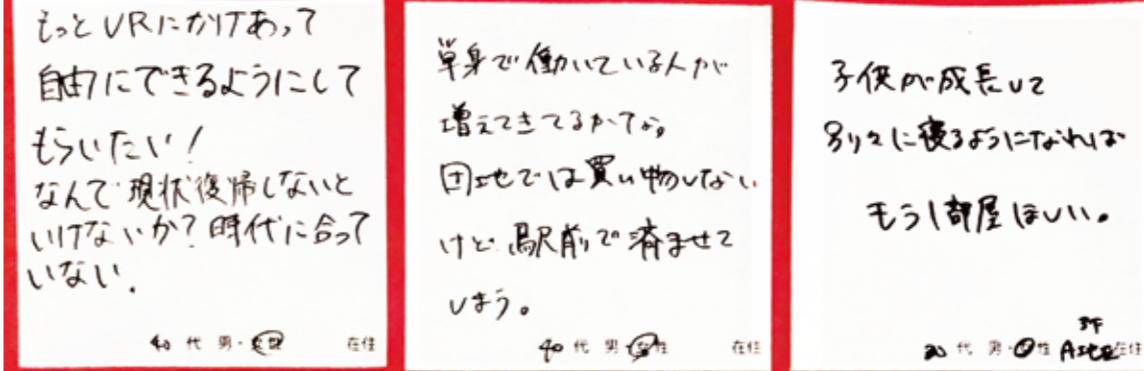 もっとURにかけあって
自由にできるようにして
もらいたい!
なんで現状復帰しないと
いけないか?時代に合って
いない.
40代 男・女性 在住
単身で働いている人が
増えてきてるかなあ。
団地では買い物しない
けど、駅前で済ませて
しまう。
40代 男・女性 在住
子供が成長して
別々に寝るようになれば
もう1部屋ほしい。
代 男・女性 在住